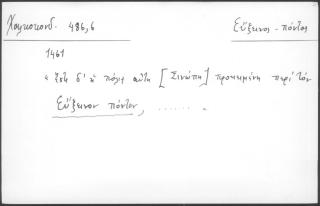 Χαλκοκονδ. 486,6 Εὔξεινος - πόντος
1461
« ἔστι δ' ἡ πόλις αὕτη [Σινώπη] προκειμένη παρὰ τὸν
Εὔξεινον πόντον, .......